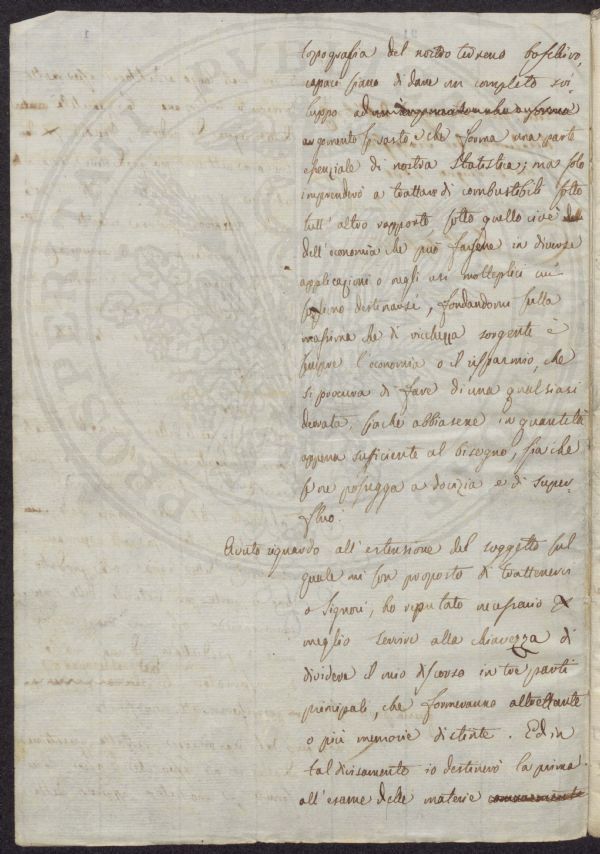 topografia del nostro terreno boschivo,
capaci siano di dare un completo svi-
luppo ad
argomento sì vasto, e che forma una parte
essenziale di nostra Statistica; ma solo
imprenderò a trattare di combustibili sotto
tutt' altro rapporto sotto quello cioè
dell'economia che può farsene in diverse
applicazioni o negli usi molteplici cui
possono destinarsi, fondandomi sulla
massima che di ricchezza sorgente è
sempre l'economia o il risparmio, che
si procura di fare di una qualsiasi
derrata, siache abbiasene in quantità
appena suficiente al bisogno, sia che
se ne posegga a dovizia e di super-
fluo.
Avuto riguardo all'estensione del soggetto sul
quale mi son proposto di trattenervi
o Signori, ho reputato necessario
meglio servire alla chiarezza di
dividere il mio discorso in tre parti
principali, che formeranno altrettante
o più memorie distinte. Ed in
tal divisamento io destinerò la prima
all'esame delle materie